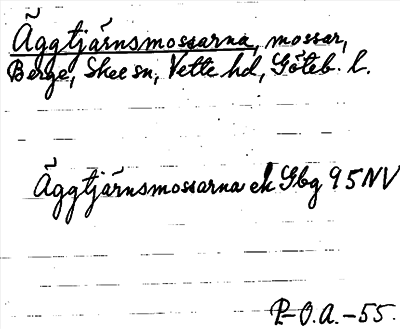 Äggtjärnsmossarna, mossar,
Berge, Skee sn, Vette hd, Göteb. l.
Äggtjärnsmossarna ek Gbg 95NV
P-O.A.-55.